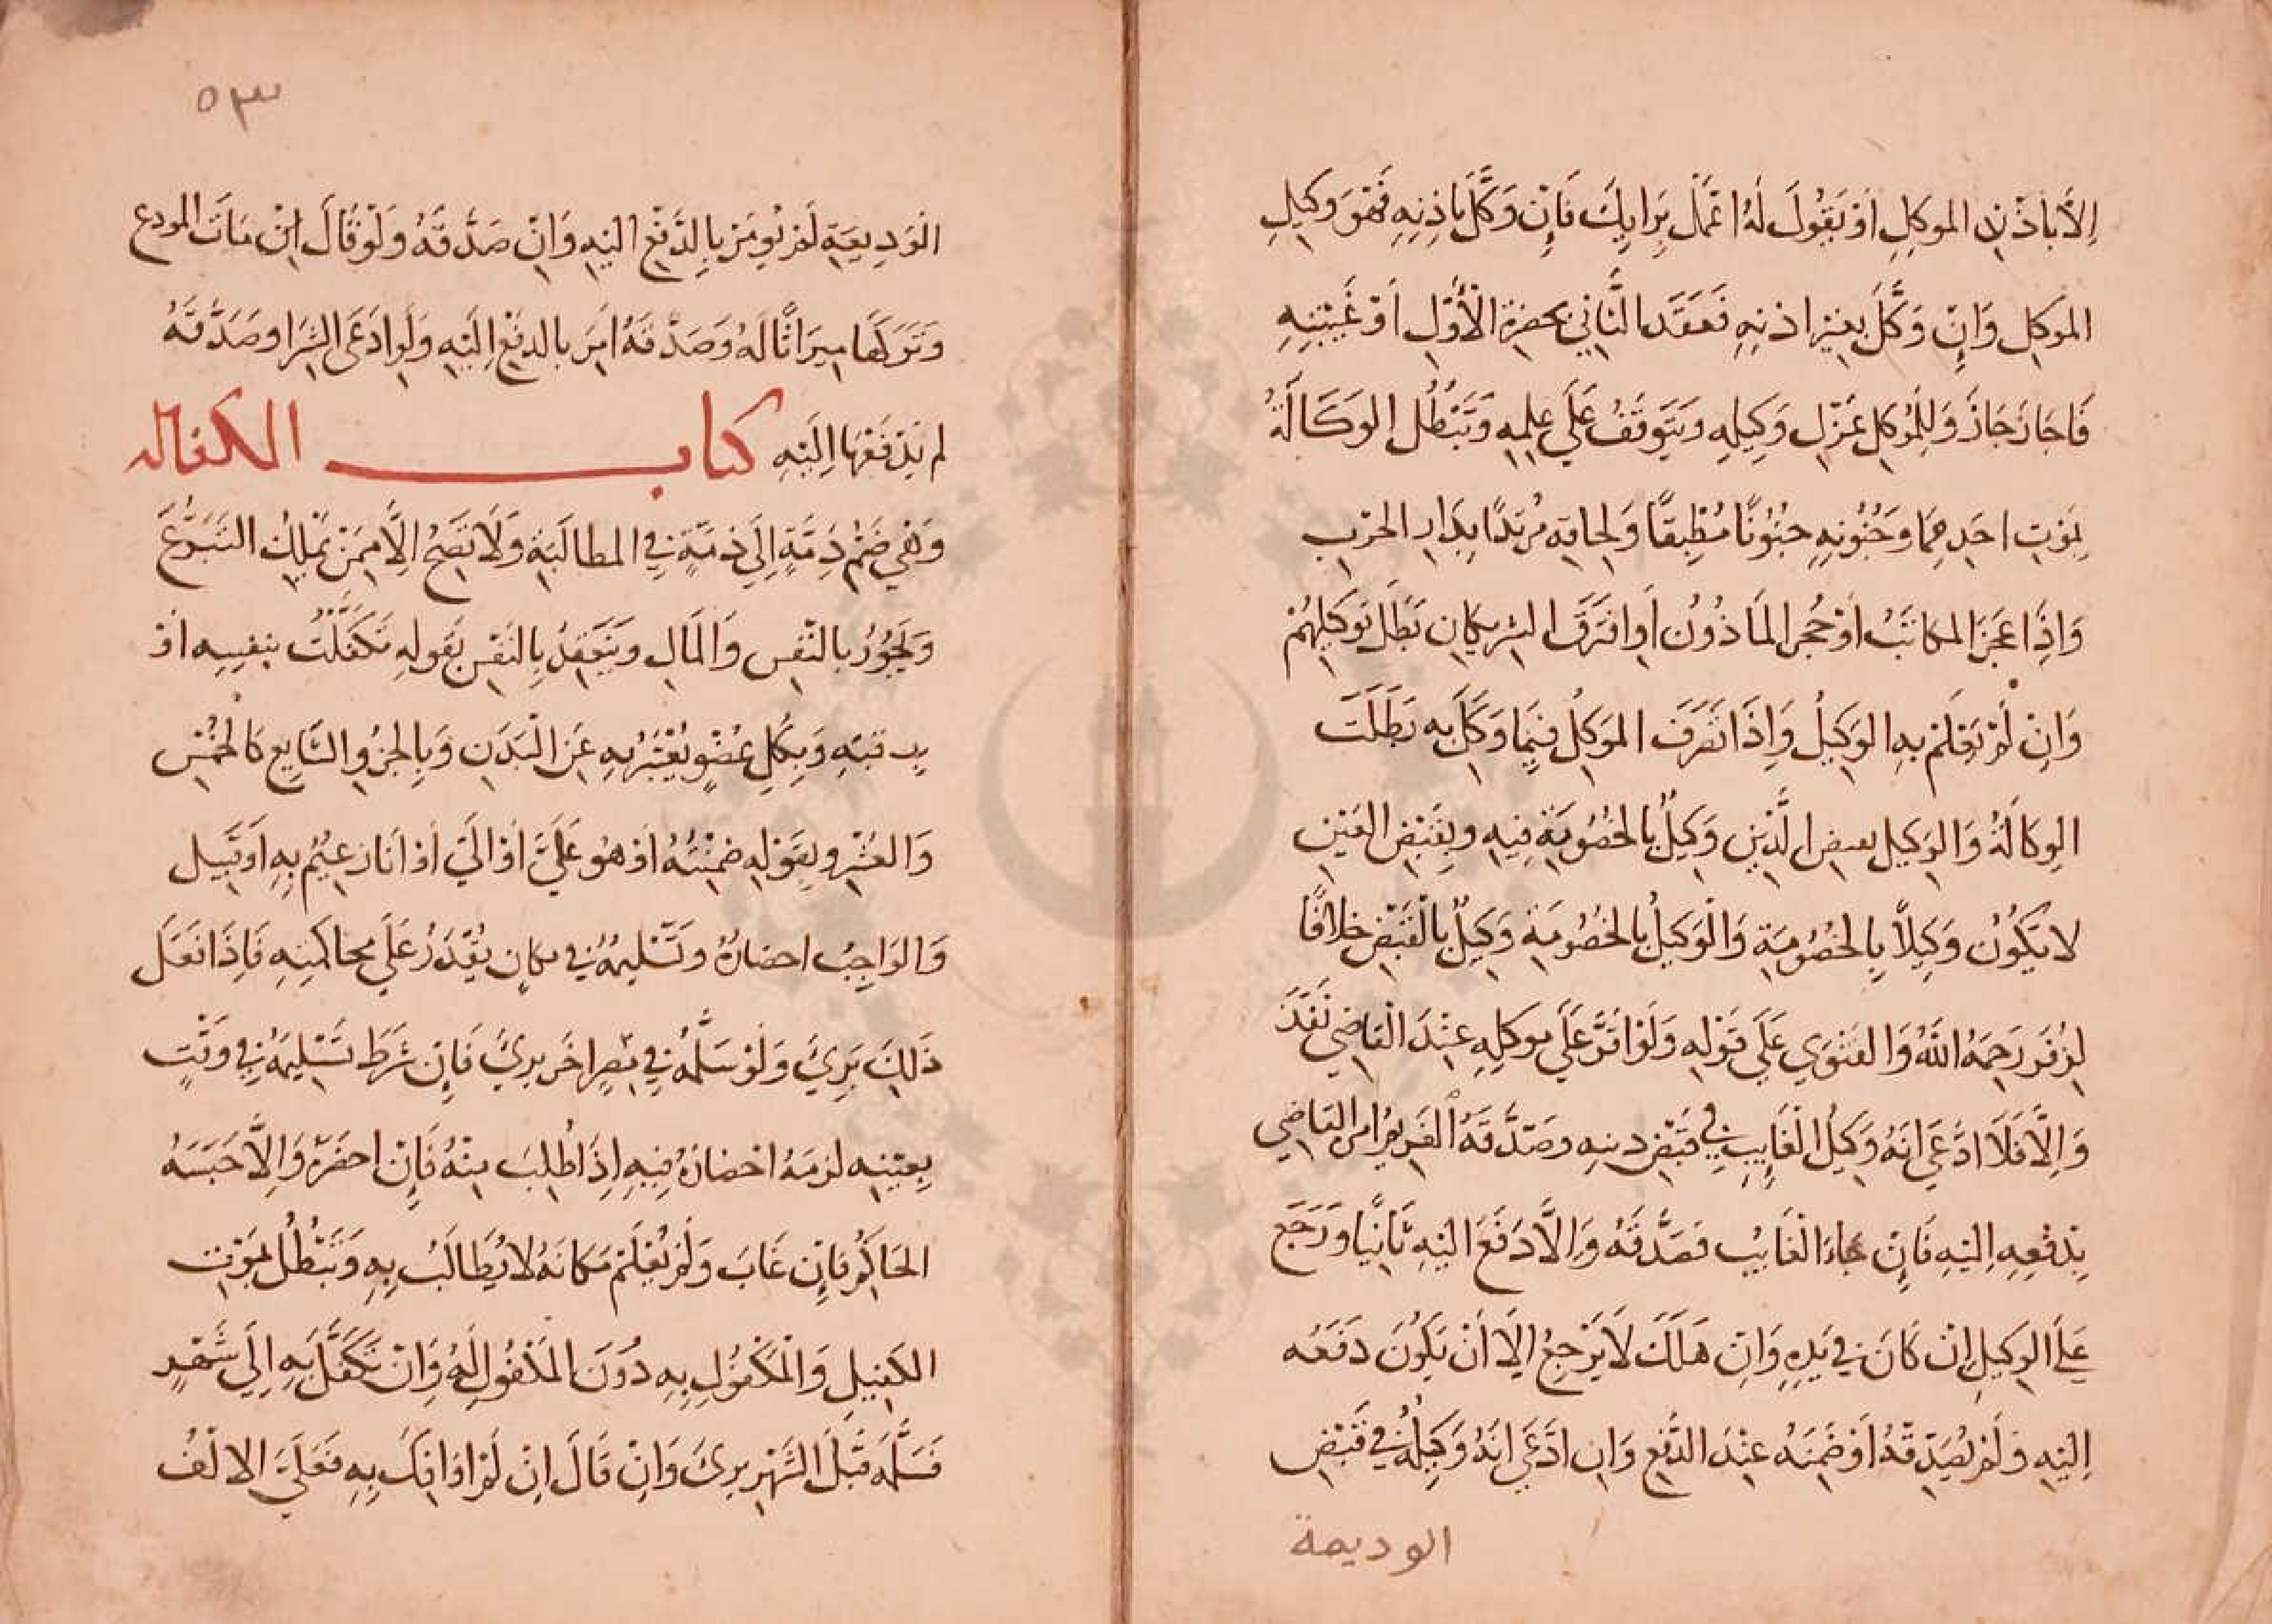 إِلَّا بِاذْنِ الموكِلِ اَوْ يَقُولَ لَهُ اعْمَلْ بِرَايِكَ فَإِنْ وَكَّلَ بِاذِنِهِ فَهْوَ وَكِيلِ
الموَكِلِ وَإِنْ وَكَّلَ بِغَيْرِ اذنِهِ فَعَقَدَ الثَّانِي بحضرَةِ الْأَوَّلِ أَوْ غَيْبَتِهِ
فَاجَازَ جَازَ وَلِلْمُوَكِلِ عَزْلِ وَكِيلِهِ وَيَتَوقَفُ عَلَي عِلمِهِ وَتَبْطُل الوَكَالَةُ
بِمَوْتِ احَدِهِمَا وَجُنُونِهِ جنُونًا مُطْبِقًا وَلِحاقِهِ مُرْتَدًا بِدَارِ الحَرْبِ
وَاِذَا عَجَزَ المكاتَبُ اَوْ حُجِرَ المَاذُونُ اَوِ افتَرَقَ الشريكانِ بَطَلَ تَوكِيلِهُمْ
وَاِنْ لَمْ يَعْلَمْ بِهِ الوَكِيلُ وَاِذَا تَصَرَفَ الموَكِلُ فِيمَا وَكَّلَ بِه بَطَلَتَ
الوِكَالَةُ وَالوَكِيل بعبضِ الدَّيْنِ وَكِيلٌ بِالخصُومَةِ فِيهِ وَبِقَبْضِ العَيْنِ
لا يَكُونُ وَكِيلاً بِالخُصُومَةِ وَالْوَكِيلُ بِالخُصُومَةِ وَكِيلٌ بِالْقَبْضِ خلَافًا
لِزُفَر رَحِمَهُ اللَّهُ وَالفَتْوَي عَلَي قَوْلِهِ وَلَوْ اَقَرَّ عَلَي موكلِهِ عِنْدَ الْقَاضِي نَفَذَ
وَاِلَّا فَلَا ادَّعَي اَنَّهُ وَكِيلُ الْغَايِبِ فِي قَبْضِ دينِهِ وصَدَّقَهُ الغَرِيمُ امر القاضِي
بِدَفْعِهِ اِلَيْهِ فَاِنْ جَاءَ الْغَايِبُ فَصَدَّقَهُ وَاِلَّا دَفَعَ اليْهِ ثَانِيًا وَرَجَعَ
عَلَي الوكِيلِ اِنْ كَانَ فِي يَدِهِ وَاِنْ هَلَكَ لَا يَرْجِعُ اِلَّا أَنْ يَكُونَ دَفَعَه
اِلَيْهِ وَلَمْ يُصَدِقْهُ اَوْ ضَمِنَهُ عِنْدَ الدَّفْعِ وَاِن ادَّعَي اَنَّهُ وَكِيلُهُ فِي قَبْضِ
الوديعة
٥٣
الوَدِيعَةِ لَمْ يُومَرْ بِالدَّفْعِ اليْهِ وَاِنْ صَدَّقَهُ وَلَوْ قَالَ اِنْ مَاتَ المودع
وَتَرَكَهَا مِيرَاثًا لَهُ وَصَدَّقَهُ اُمِرَ بالدفْعِ اِلَيْهِ وَلَوِ ادَعَى الشِرَا وصَدَّقَهُ
لم يَدْفَعْهَا اِلَيْهِ كتاب الكفاله
وَهْيَ ضَمُّ ذِمَّةٍ اِلَي ذِمَّةٍ فِي المطالَبَةِ وَلَا تَصِحُ اِلَّا مِمَنْ يَمْلِكُ التَبَرُّعَ
وَتَجُوزُ بِالنَّفْسِ وَالمَالِ وَتَنْعَقِدُ بِالنَفْسِ بِقَولِهِ تَكَفَّلْتُ بنفسِهِ اَوْ
بِرقبَتِهِ وَبِكُلِ عُضْوٍ يُعْبَّرُ بِهِ عَنِ الْبَدَنِ وَبِالجزُو الشَّايعِ كَالخُمْسِ
وَالعُشْرِ وبِقوْلِهِ ضمِنْتُهُ اَوْ هُو عَلَيَّ اَوْ اِلَيَّ اَوْ اَنَا زعِيمٌ بِهِ اَوْ قَبِيل
وَالوَاجِبُ احضارُهُ وتَسْلِيمُهُ فِي مكانٍ يُقْدَرُ عَلَي محاكمتِهِ فَاِذَا فَعَلَ
ذَلِكَ بَرِيَ وَلَوْ سَلَّمَهُ فِي مِصْرٍ اخَر بريَ فَاِن شَرَطَ تَسْلِيمَهُ فِي وَقْتٍ
بعيْنِهِ لزمَهُ احْضارَهُ فِيهِ اِذَا طُلِبَ مِنْهُ فَاِنْ احضَرَهُ وَاِلَّا حَبَسَهُ
الحَاكِمُ فَاِن غَابَ وَلَمْ يُعْلَمْ مَكانَهُ لا يُطَالَبُ بِهِ وَتَبْطُلُ بمَوْتِ
الكَفِيلِ وَالْمَكْفُولِ بِهِ دُونَ المَكْفُولِ لَهُ وَاِنْ تَكَفَّلَ بِهِ اِلَي شَهْرٍ
فَسَلَّمَهُ قَبْلَ الشَّهْرِ بريَ وَاِنْ قَالَ اِنْ لَمْ اوَافِكَ بِهِ فَعَلَيَّ الالْفُ